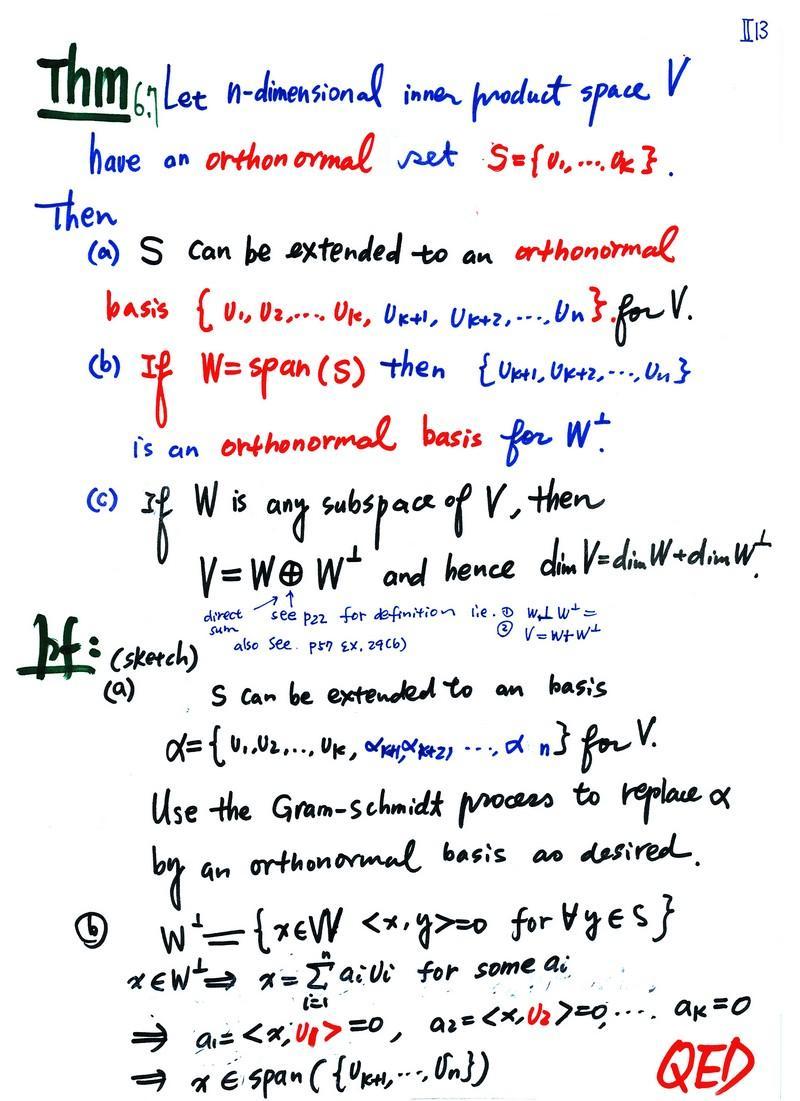 II13
Thm 6.7 Let n-dimensional inner product space V
have an orthonormal set S={υ₁,...υₖ}.
Then
(a) S can be extended to an orthonormal
basis {υ₁,υ₂,...υₖ, υₖ₊₁, υₖ₊₂,...,υₙ}.for V.
(b) If W=span(S) then {υₖ₊₁,υₖ₊₂,...,υₙ}
is an orthonormal basis for W⊥.
(c) If W is any subspace of V, then
V=W⊕W⊥ and hence dim V=dim W+dim W⊥.
direct sum see P22 for definition i.e. ① W⊥W⊥=
also see. P57 Ex.29(b) ② V=W+W⊥
pf: (sketch)
(a) S can be extended to an basis
α={υ₁,υ₂,..,υₖ,αₖ₊₁,αₖ₊₂, ...,α n} for V.
Use the Gram-Schmidt process to replace α
by an orthonormal basis as desired.
ⓑ W⊥={x∈W <x,y>=0 for ∀y∈S}
x∈W⊥⇒ x=∑ⁿᵢ₌₁ aᵢυᵢ for some aᵢ
⇒ a₁=<x,υ₁>=0, a₂=<x,υ₂>=0,.... aₖ=0
⇒ x∈span({υₖ₊₁,...,υₙ}) QED